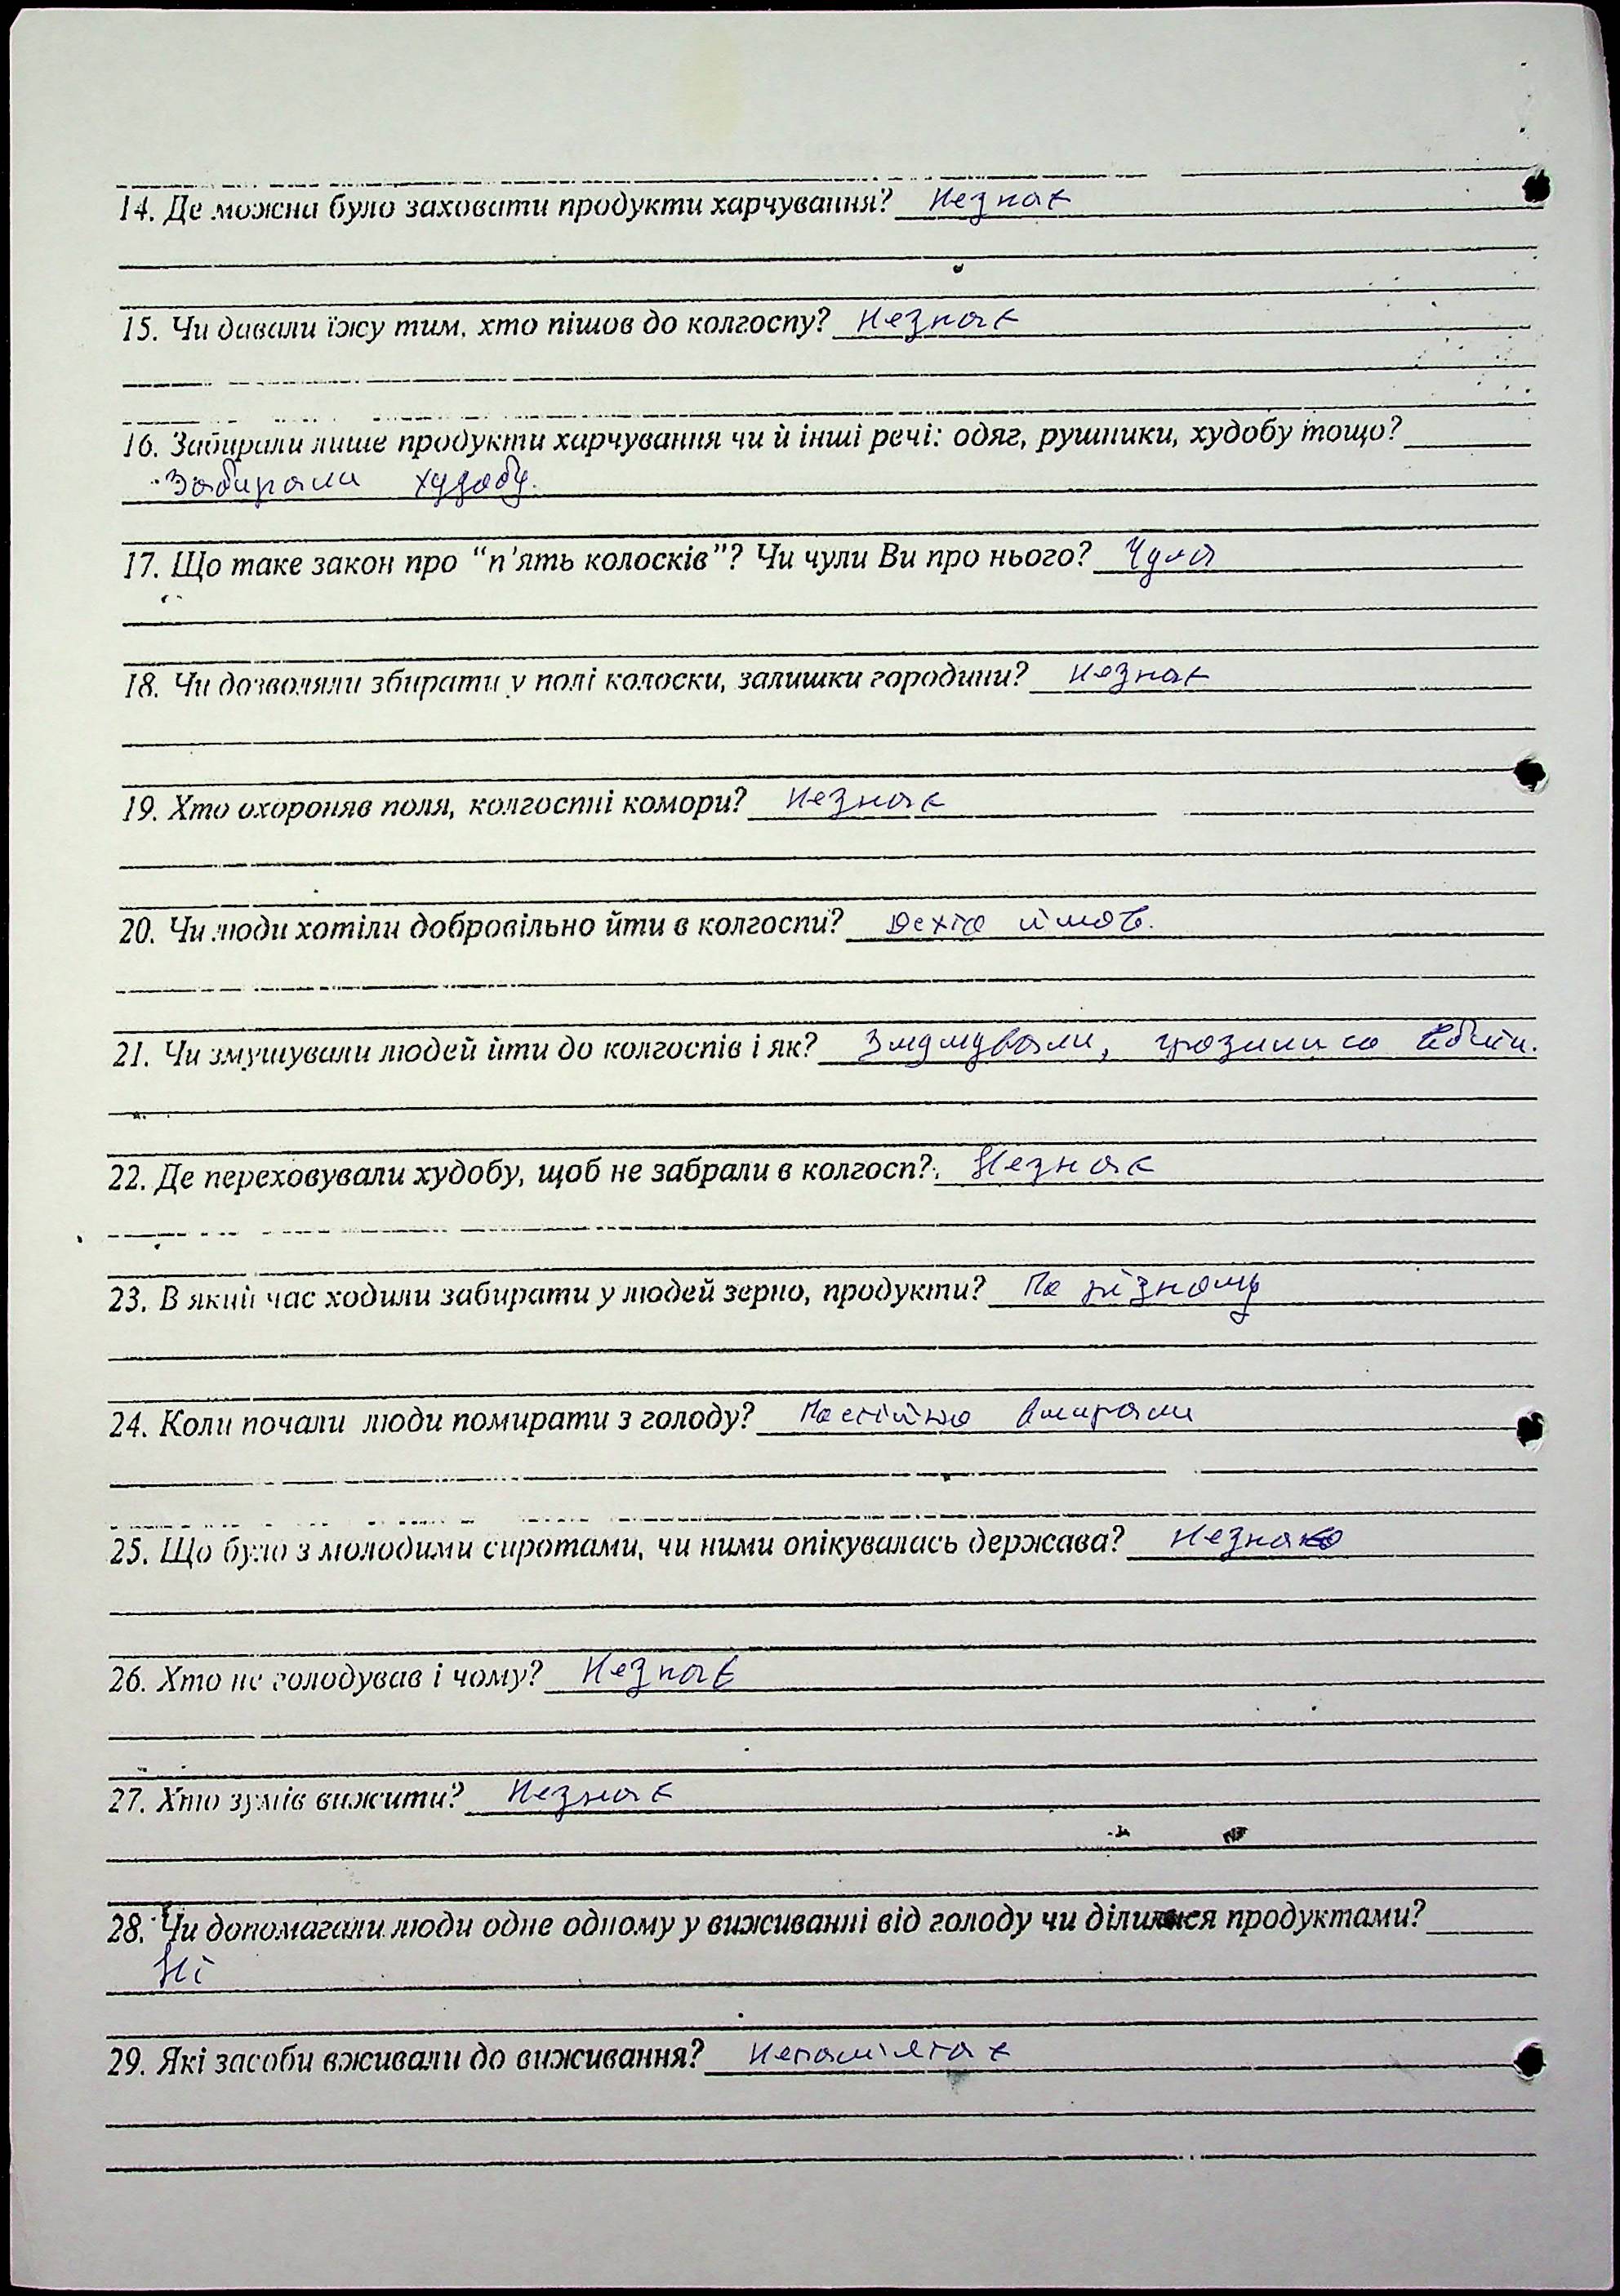 14. Де можна було заховати продукти харчування? Незнає
15. Чи давали їжу тим, хто пішов до колгоспу? Незнає
16. Забирали лише продукти харчування чи й інші речі: одяг, рушники, худобу тощо?
Забирали худобу.
17. Що таке закон про “п’ять колосків”? Чи чули Ви про нього? Чула
18. Чи дозволяли збирати у полі колоски, залишки городини? Незнає
19. Хто охороняв поля, колгоспні комори? Незнає
20. Чи люди хотіли добровільно йти в колгоспи? Дехто йшов.
21. Чи змушували людей йти до колгоспів і як? Змушували, грозили
22. Де переховували худобу, щоб не забрали в колгосп? Незнає
23. В який час ходили забирати у людей зерно, продукти? По різному
24. Коли почали люди помирати з голоду? Постійно вмирали
25. Що було з молодими сиротами, чи ними опікувалась держава? Незнаю
26. Хто не голодував і чому? Незнає
27. Хто зумів вижити? Незнає
28. Чи допомагали люди одне одному у виживанні від голоду чи ділилися продуктами?
Ні
29. Які засоби вживали до виживання? Непам'ятає